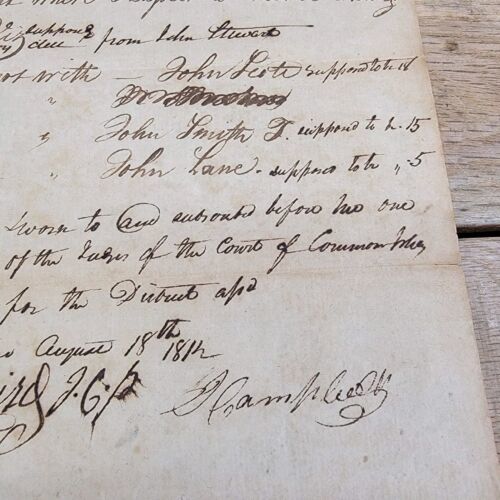 suppose
due from John Stewart
with — John Scott suppos'd to be 18
" John Smith T. suppos'd to b. 15
" John Lane. suppos'd to be ,, 5
Sworn to and subscribed before me one
of the Judges of the Court of Common Pleas
for the District afsd
August 18th 1812
J.C.P
Campbell